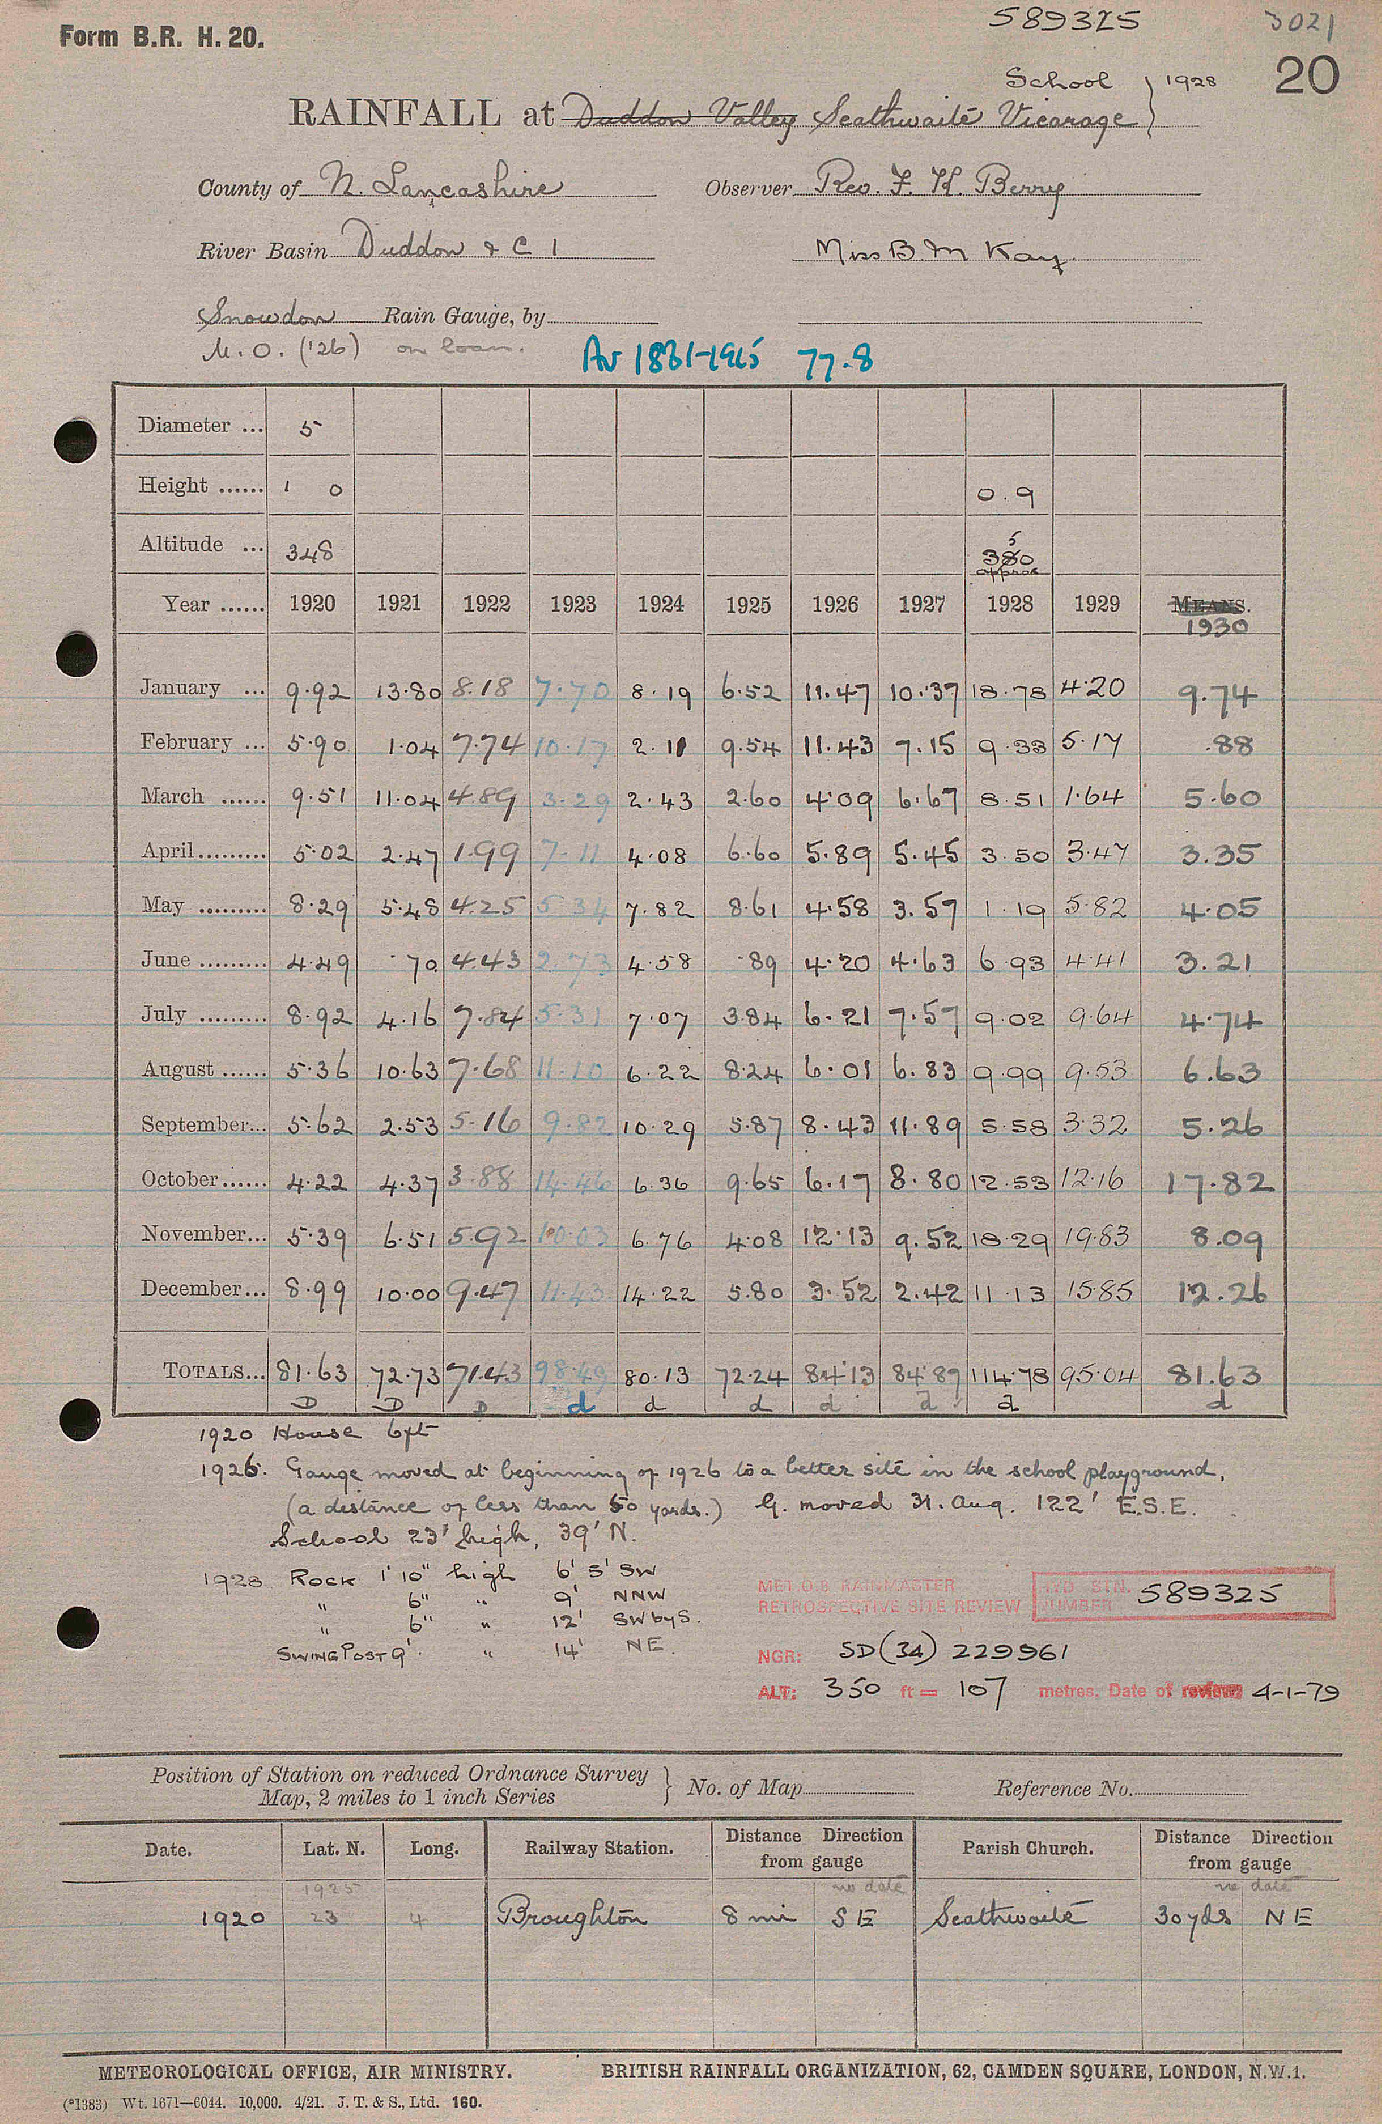 Form B.R. H. 20.
589325
3021
20
School } 1928
RAINFALL at Duddon Valley Seathwaite Vicarage
County of N. Lancashire Observer Rev. F. H. Berry
River Basin Duddon & C 1 Miss B M Kay
Snowdon Rain Gauge, by
M.O. ('26) on loan. Av 1881-1915 77.8
Diameter ... 5
Height ...... 1 0 0.9
Altitude ... 348 380 5 approx
Year ...... 1920 1921 1922 1923 1924 1925 1926 1927 1928 1929 MEANS. 1930
January ... 9.92 13.80 8.18 7.70 8.19 6.52 11.47 10.37 18.78 4.20 9.74
February ... 5.90 1.04 7.74 10.17 2.11 9.54 11.43 7.15 9.33 5.17 .88
March ...... 9.51 11.04 4.89 3.29 2.43 2.60 4.09 6.67 8.51 1.64 5.60
April ......... 5.02 2.47 1.99 7.11 4.08 6.60 5.89 5.45 3.50 3.47 3.35
May ......... 8.29 5.48 4.25 5.34 7.82 8.61 4.58 3.57 1.19 5.82 4.05
June ......... 4.49 .70 4.43 2.73 4.58 .89 4.20 4.63 6.93 4.41 3.21
July ......... 8.92 4.16 7.84 5.31 7.07 3.84 6.21 7.57 9.02 9.64 4.74
August ...... 5.36 10.63 7.68 11.10 6.22 8.24 6.01 6.83 9.99 9.53 6.63
September... 5.62 2.53 5.16 9.82 10.29 5.87 8.43 11.89 5.58 3.32 5.26
October...... 4.22 4.37 3.88 14.46 6.36 9.65 6.17 8.80 12.53 12.16 17.82
November... 5.39 6.51 5.92 10.03 6.76 4.08 12.13 9.52 18.29 19.83 8.09
December... 8.99 10.00 9.47 11.43 14.22 5.80 3.52 2.42 11.13 15.85 12.26
TOTALS... 81.63 72.73 71.43 98.49 80.13 72.24 84.13 84.87 114.78 95.04 81.63
D D D d d d d d d d
1920 House 6ft
1926. Gauge moved at beginning of 1926 to a better site in the school playground,
(a distance of less than 50 yards.) G. moved 31. Aug. 122' E.S.E.
School 23' high, 39' N.
1928 Rock 1' 10" high 6' 5' SW
" 6" " 9' NNW
" 6" " 12' SW by S.
SWING POST 9'. " 14' NE.
MET.O.8 RAINMASTER
RETROSPECTIVE SITE REVIEW
HYD STN. NUMBER 589325
NGR: SD(34) 229961
ALT: 350 ft = 107 metres. Date of review 4-1-79
Position of Station on reduced Ordnance Survey
Map, 2 miles to 1 inch Series } No. of Map Reference No.
Date. Lat. N. Long. Railway Station. Distance Direction from gauge Parish Church. Distance Direction from gauge
1925 no date no date
1920 23 4 Broughton 8 mi SE Seathwaite 30yds NE
METEOROLOGICAL OFFICE, AIR MINISTRY. BRITISH RAINFALL ORGANIZATION, 62, CAMDEN SQUARE, LONDON, N.W.1.
(*1383) Wt. 1671—6044. 10,000. 4/21. J. T. & S., Ltd. 160.